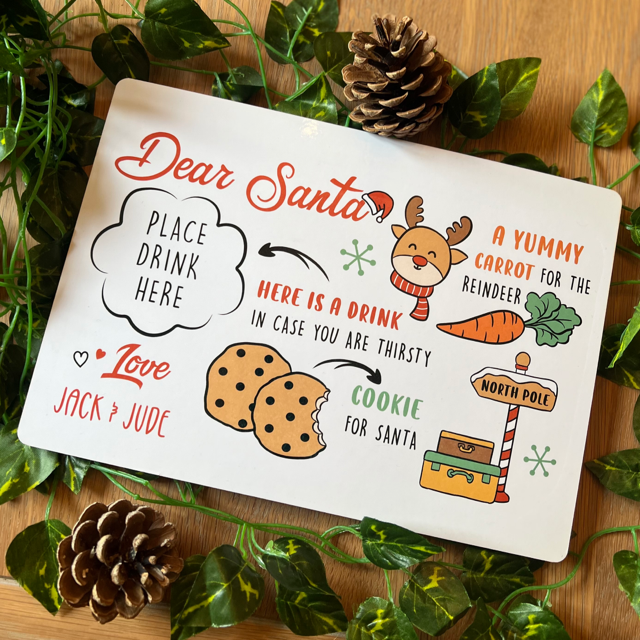 Dear Santa
PLACE
DRINK
HERE
HERE IS A DRINK
IN CASE YOU ARE THIRSTY
A YUMMY
CARROT FOR THE
REINDEER
Love
JACK & JUDE
COOKIE
FOR SANTA
NORTH POLE